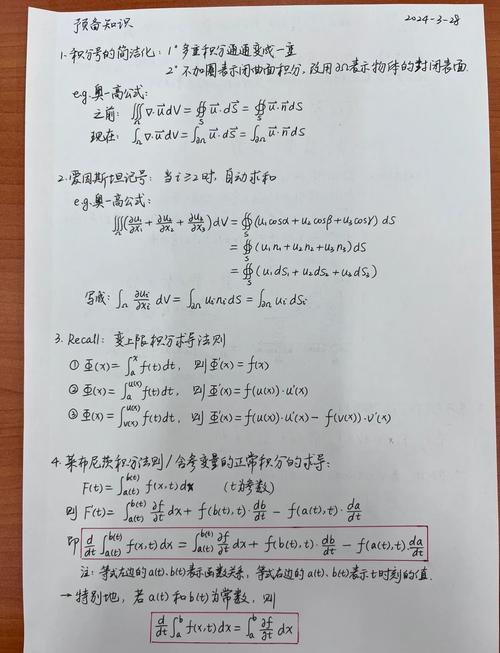 预备知识 2024-3-28
1. 积分号的简洁化：1° 多重积分通通变成一重
2° 不加圈表示闭曲面积分，改用∂Ω表示物体的封闭表面.
e.g. 奥—高公式：
之前：∭_Ω ∇·u⃗ dV = ∯_S u⃗·dS⃗ = ∯_S u⃗·n⃗ dS
现在：∫_Ω ∇·u⃗ dV = ∫_∂Ω u⃗·dS⃗ = ∫_∂Ω u⃗·n⃗ dS
2. 爱因斯坦记号：当 i≥2 时，自动求和
e.g. 奥—高公式：
∭_Ω (∂u₁/∂x₁ + ∂u₂/∂x₂ + ∂u₃/∂x₃) dV = ∯_S (u₁cosα + u₂cosβ + u₃cosγ) dS
= ∯_S (u₁n₁ + u₂n₂ + u₃n₃) dS
= ∯_S (u₁dS₁ + u₂dS₂ + u₃dS₃)
写成：∫_Ω ∂uᵢ/∂xᵢ dV = ∫_∂Ω uᵢnᵢdS = ∫_∂Ω uᵢdSᵢ
3. Recall：变上限积分求导法则
① Φ(x) = ∫_a^x f(t)dt，则 Φ'(x) = f(x)
② Φ(x) = ∫_a^{u(x)} f(t)dt，则 Φ'(x) = f(u(x))·u'(x)
③ Φ(x) = ∫_{v(x)}^{u(x)} f(t)dt，则 Φ'(x) = f(u(x))·u'(x) − f(v(x))·v'(x)
4. 莱布尼茨积分法则/含参变量的正常积分的求导：
F(t) = ∫_{a(t)}^{b(t)} f(x,t)dx (t为参数)
则 F'(t) = ∫_{a(t)}^{b(t)} ∂f/∂t dx + f(b(t),t)·db/dt − f(a(t),t)·da/dt
即 d/dt ∫_{a(t)}^{b(t)} f(x,t)dx = ∫_{a(t)}^{b(t)} ∂f/∂t dx + f(b(t),t)·db/dt − f(a(t),t) da/dt
注：等式左边的a(t)、b(t)表示函数关系，等式右边的a(t)、b(t)表示t时刻的值.
→ 特别地，若 a(t) 和 b(t) 为常数，则
d/dt ∫_a^b f(x,t)dx = ∫_a^b ∂f/∂t dx